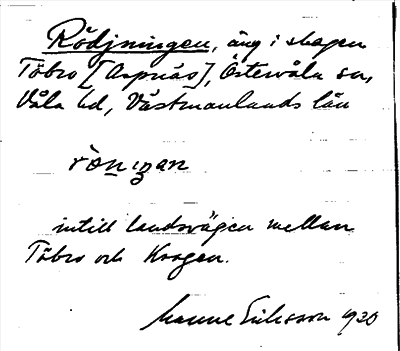 Rödjningen, äng i skogen
Täbro [Aspnäs], Östervåla sn,
Våla hd, Västmanlands län
intill landsvägen mellan
Täbro och Krogen.
Manne Eriksson 1930